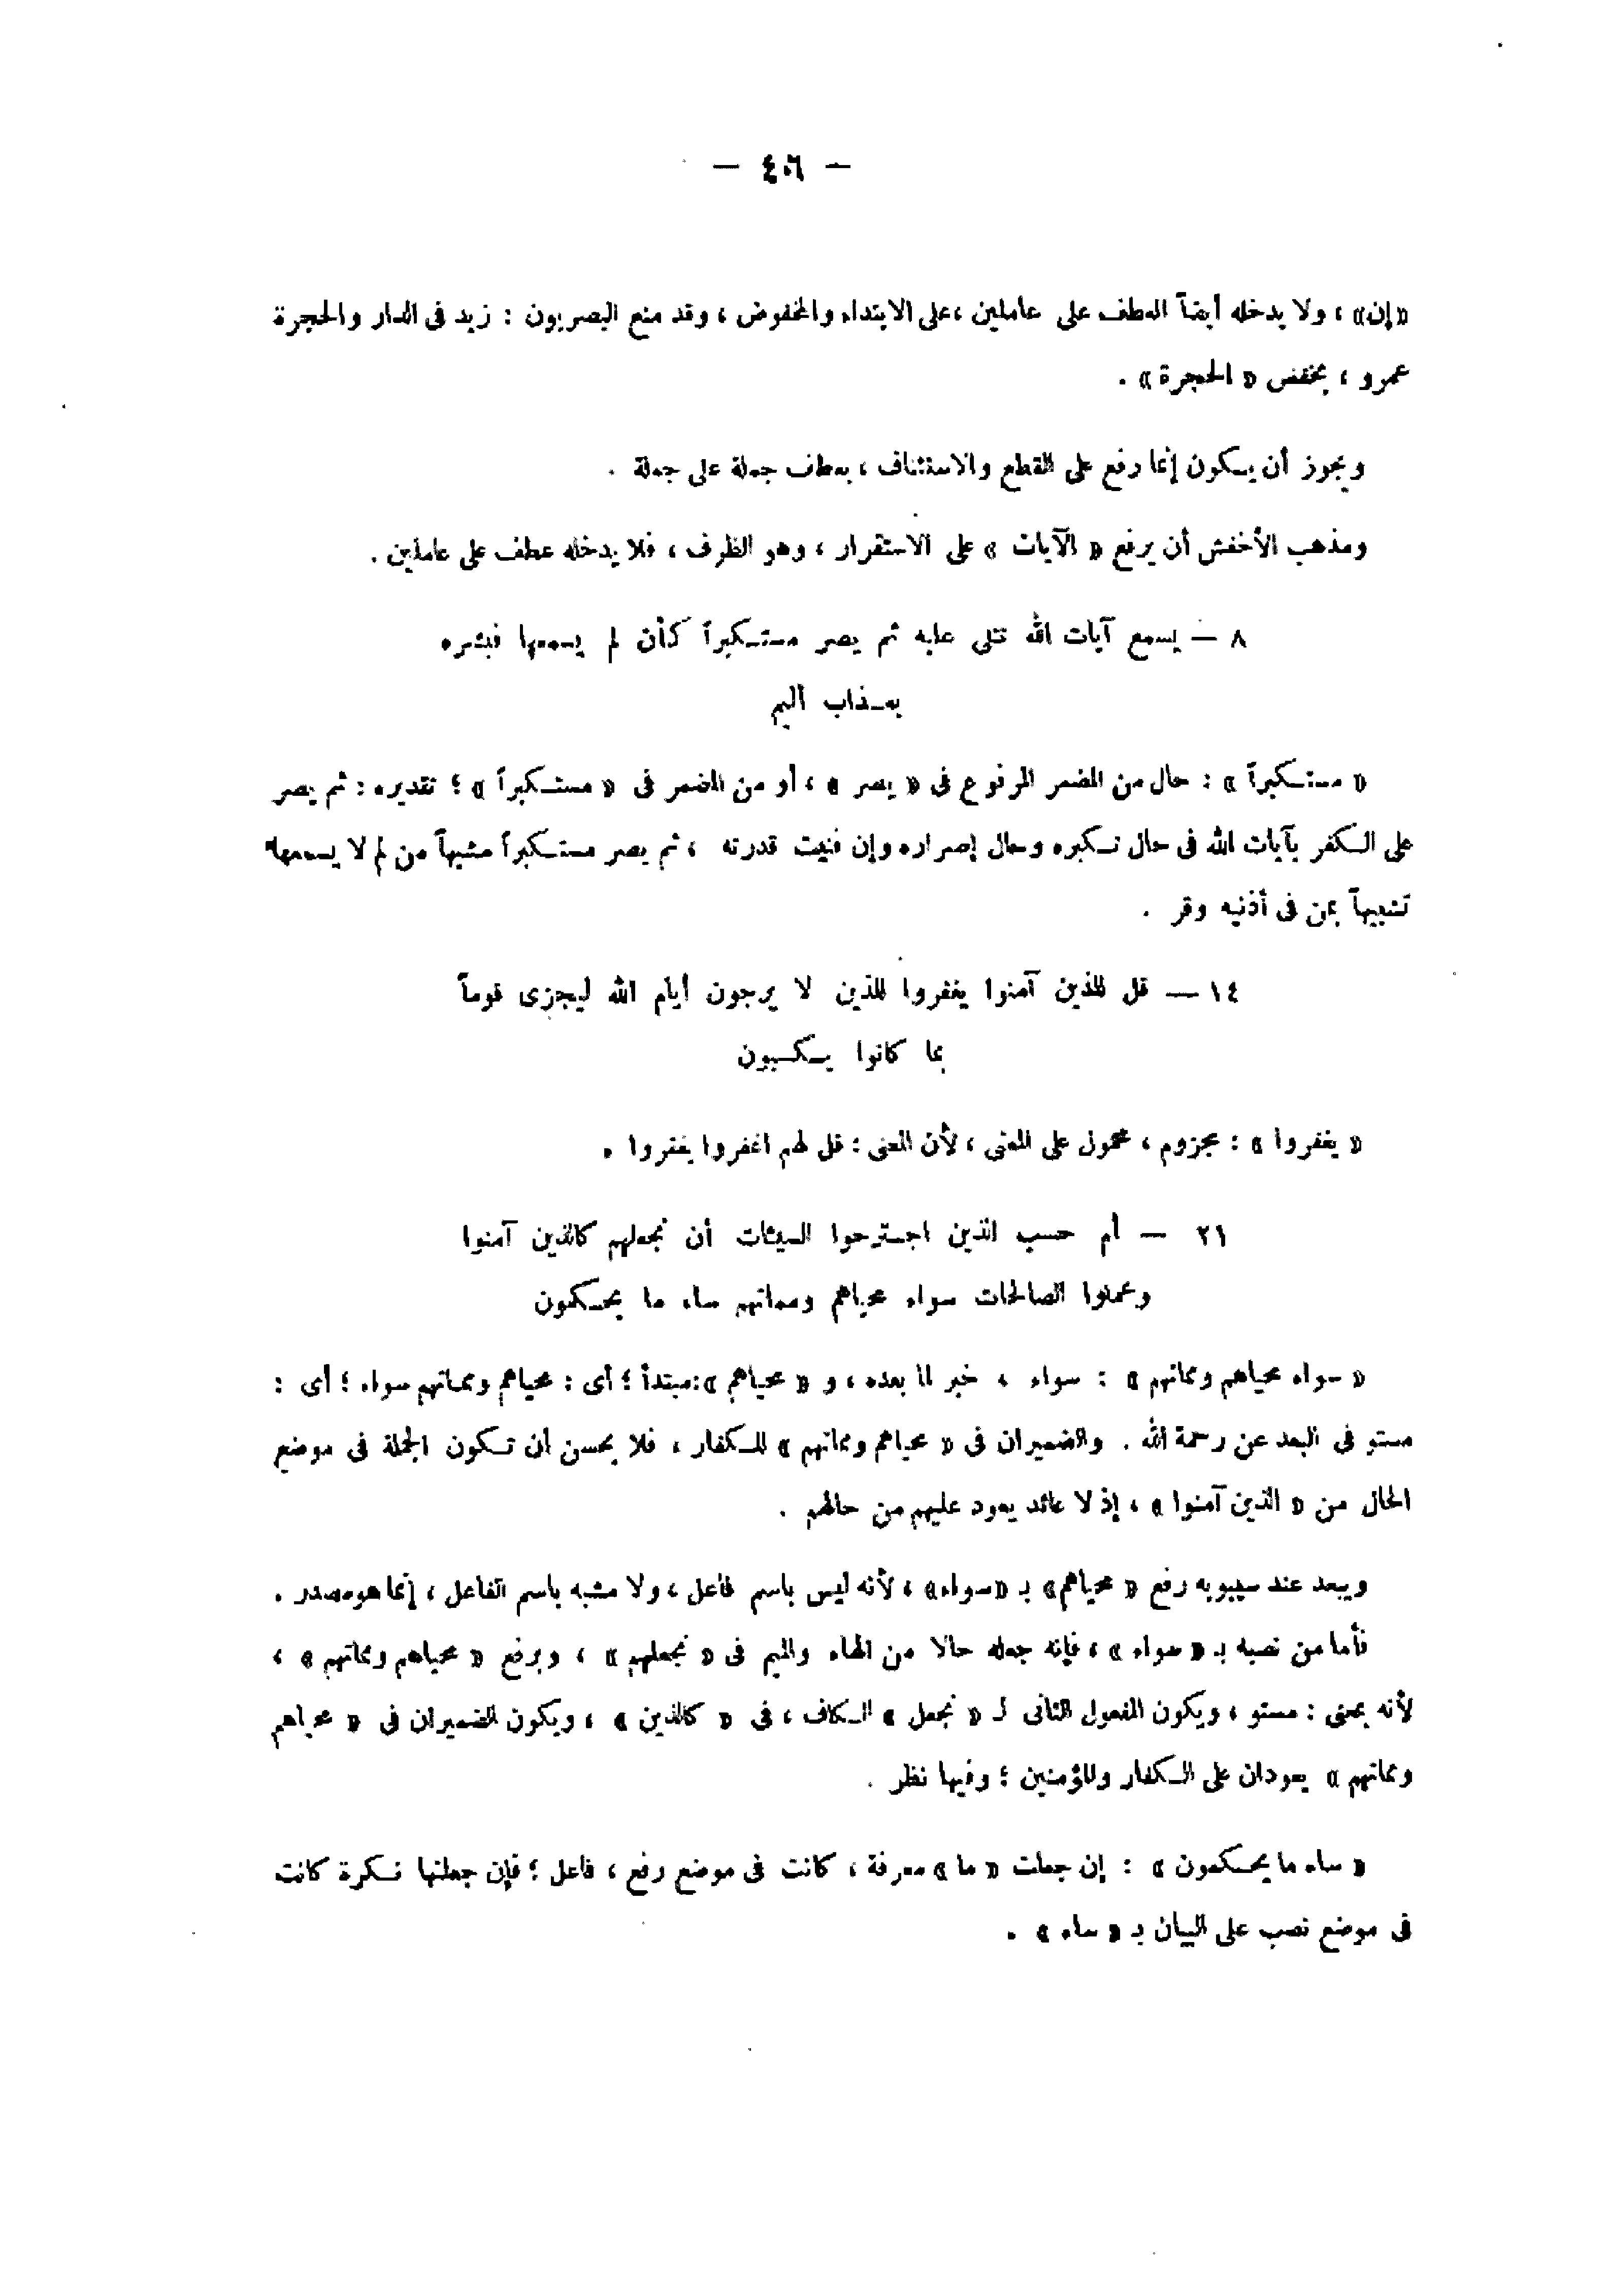 — ٤٠٦ —
«إن» ، ولا يدخله أيضاً العطف على عاملين ،على الابتداء والمخفوض ، وقد منع البصريون : زيد فى الدار والحجرة
عمرو ، بخفض « الحجرة » .
ويجوز أن يكون إنما رفع على القطع والاستئناف ، بعطف جملة على جملة .
ومذهب الأخفش أن يرفع « الآيات » على الاستقرار ، وهو الظرف ، فلا يدخله عطف على عاملين .
٨ — يسمع آيات الله تتلى عليه ثم يصر مستكبراً كأن لم يسمعها فبشره
بعذاب أليم
« مستكبراً » : حال من المضمر المرفوع فى « يصر » ، أو من المضمر فى « مستكبراً » ؛ تقديره : ثم يصر
على الكفر بآيات الله فى حال تكبره وحال إصراره وإن فنيت قدرته ، ثم يصر مستكبراً مشبهاً من لم لا يسمعها
تشبيهاً بمن فى أذنيه وقر .
١٤ — قل للذين آمنوا يغفروا للذين لا يرجون أيام الله ليجزى قوماً
بما كانوا يكسبون
« يغفروا » : مجزوم ، محمول على المعنى ، لأن المعنى : قل لهم اغفروا يغفروا .
٢١ — أم حسب الذين اجترحوا السيئات أن نجعلهم كالذين آمنوا
وعملوا الصالحات سواء محياهم ومماتهم ساء ما يحكمون
« سواء محياهم ومماتهم » : سواء ، خبر لما بعده ، و « محياهم »:مبتدأ ؛ أى : محياهم ومماتهم سواء ؛ أى :
مستو فى البعد عن رحمة الله . والضميران فى « محياهم ومماتهم » للكفار ، فلا يحسن أن تكون الجملة فى موضع
الحال من « الذين آمنوا » ، إذ لا عائد يعود عليهم من حالهم .
ويبعد عند سيبويه رفع « محياهم» بـ «سواء» ، لأنه ليس باسم فاعل ، ولا مشبه باسم الفاعل ، إنما هو مصدر .
فأما من نصبه بـ « سواء » ، فإنه جعله حالا من الهاء والميم فى « نجعلهم » ، ويرفع « محياهم ومماتهم » ،
لأنه بمعنى : مستو ، ويكون المفعول الثانى لـ « نجعل » الكاف ، فى « كالذين » ، ويكون الضميران فى « محياهم
ومماتهم » يعودان على الكفار والمؤمنين ؛ وفيها نظر .
« ساء ما يحكمون » : إن جعلت « ما » معرفة ، كانت فى موضع رفع ، فاعل ؛ فإن جعلتها نكرة كانت
فى موضع نصب على البيان بـ « ساء » .